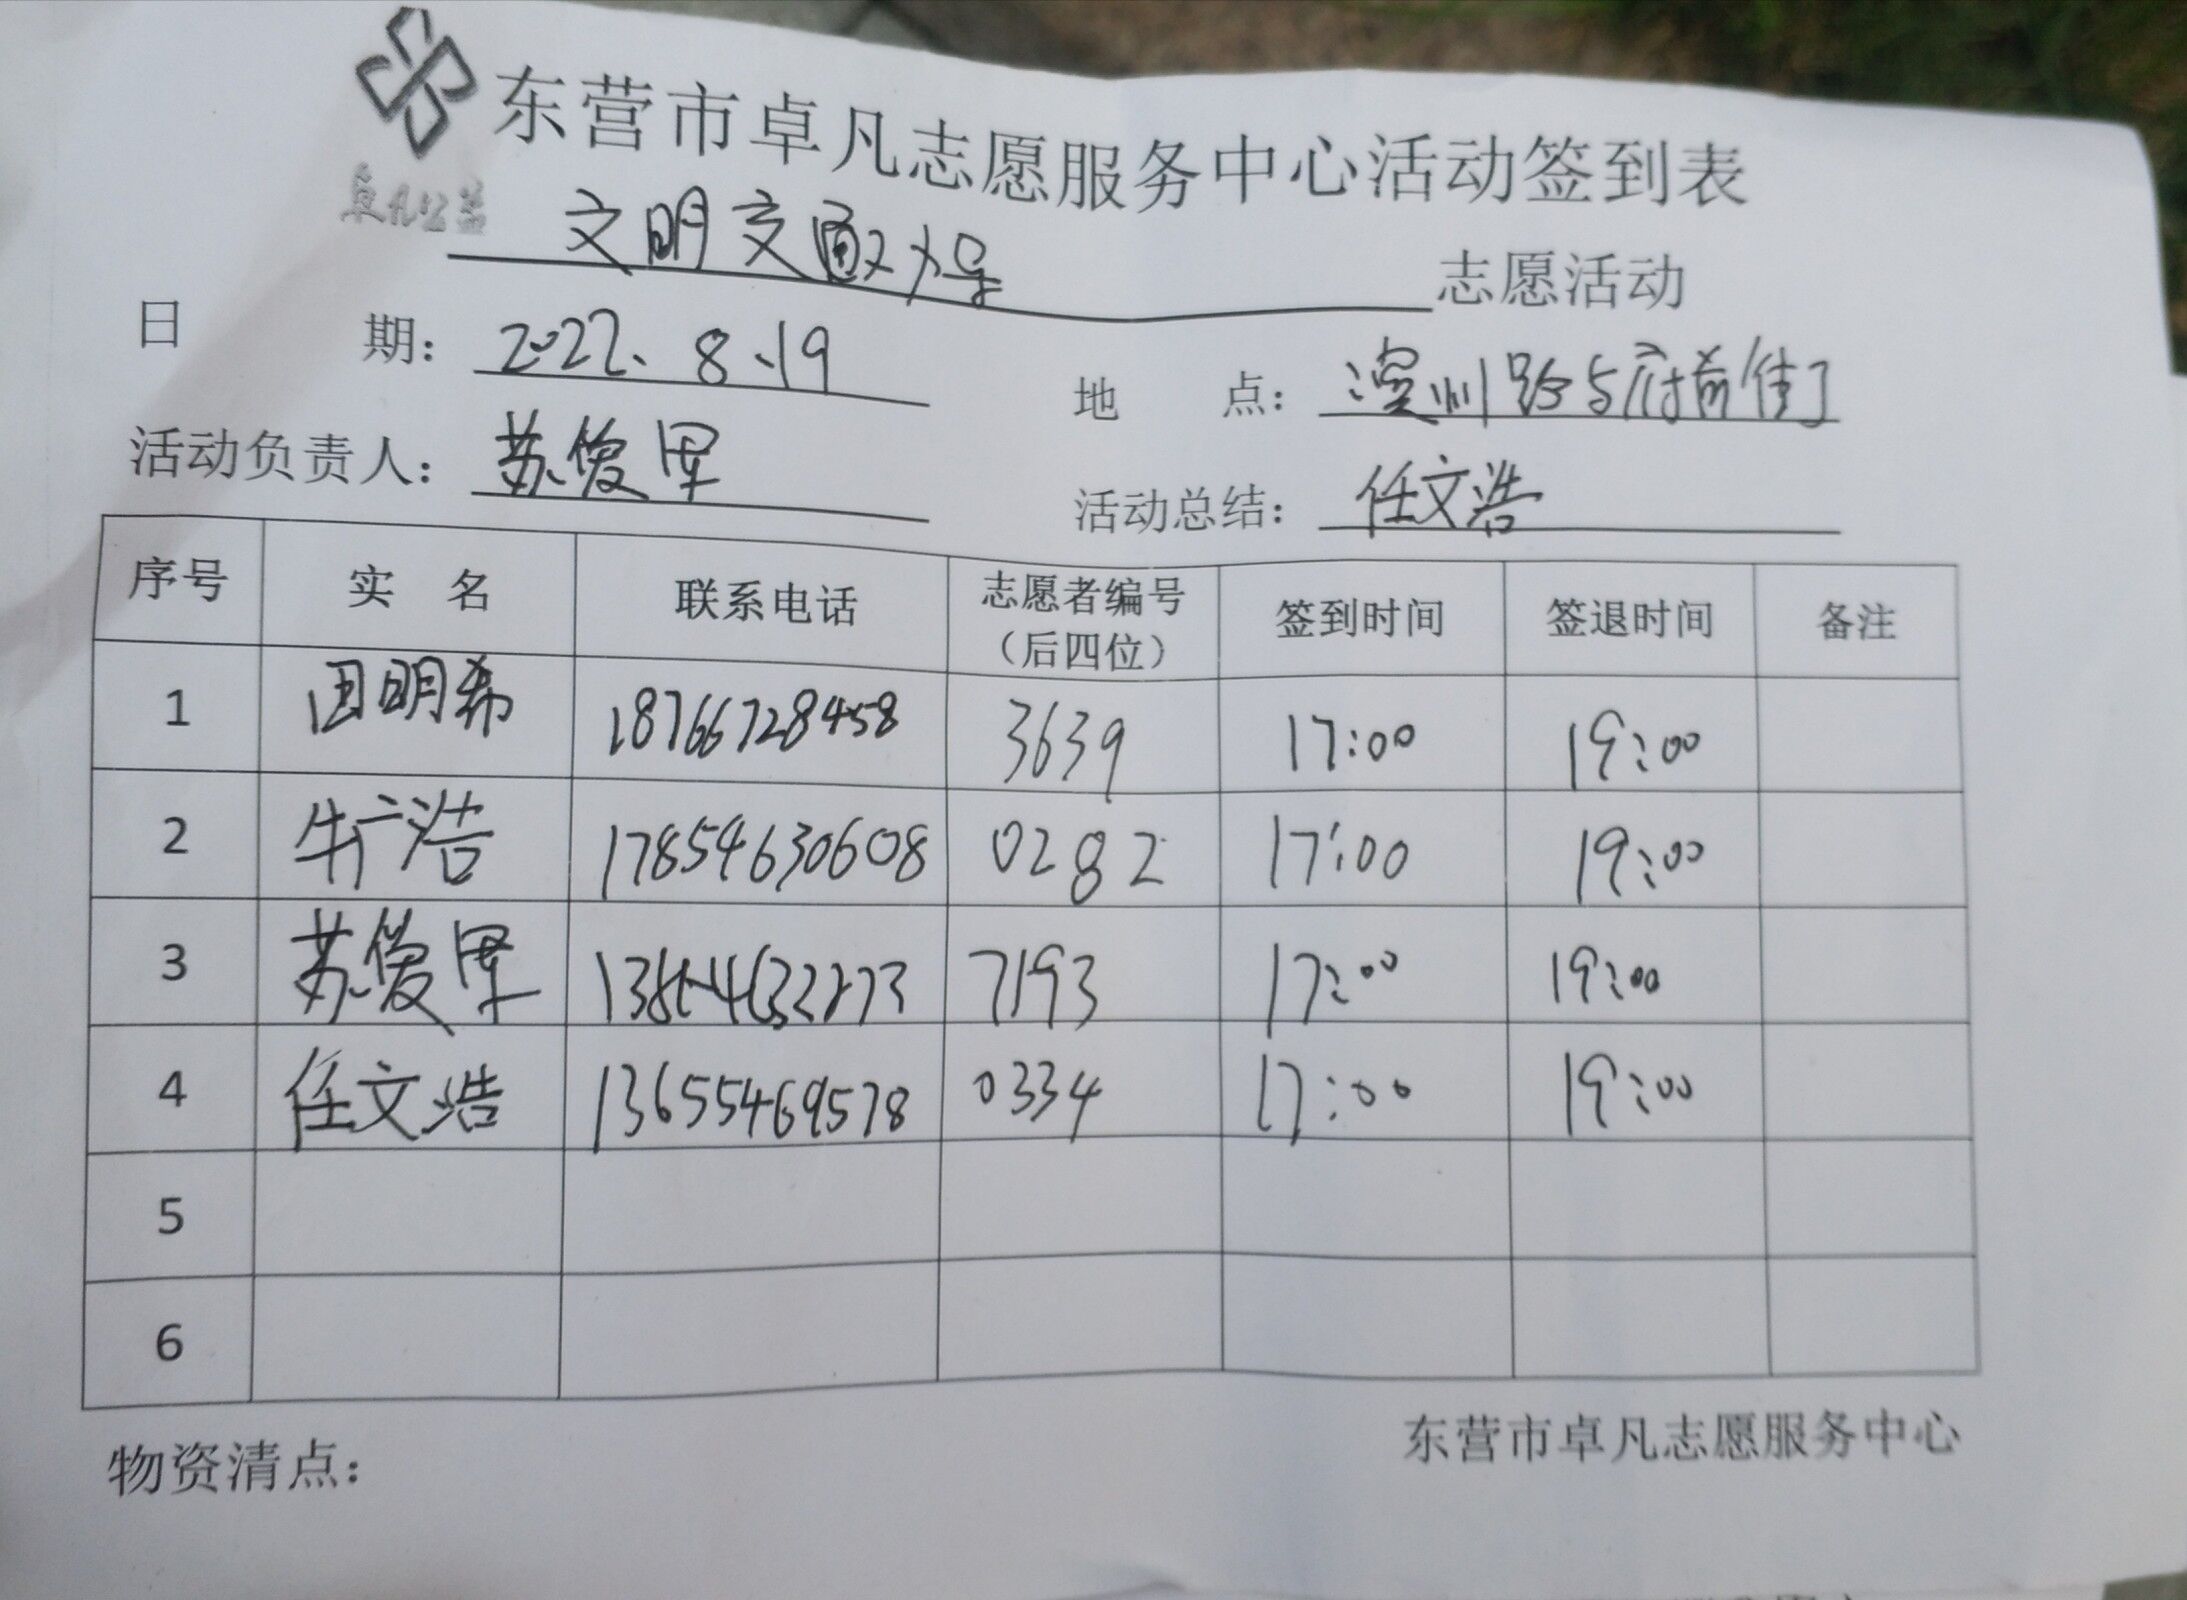 东营市卓凡志愿服务中心活动签到表
卓凡公益
文明交通 导 志愿活动
日期： 2022、8、19
地点： 滨州路与府前街
活动负责人： 苏俊
活动总结： 任文浩
序号 实名 联系电话 志愿者编号（后四位） 签到时间 签退时间 备注
1 田明希 18766728458 3639 17:00 19:00
2 牛广浩 17854630608 0282 17:00 19:00
3 苏俊 7193 17:00 19:00
4 任文浩 13655469578 0334 17:00 19:00
5
6
物资清点：
东营市卓凡志愿服务中心